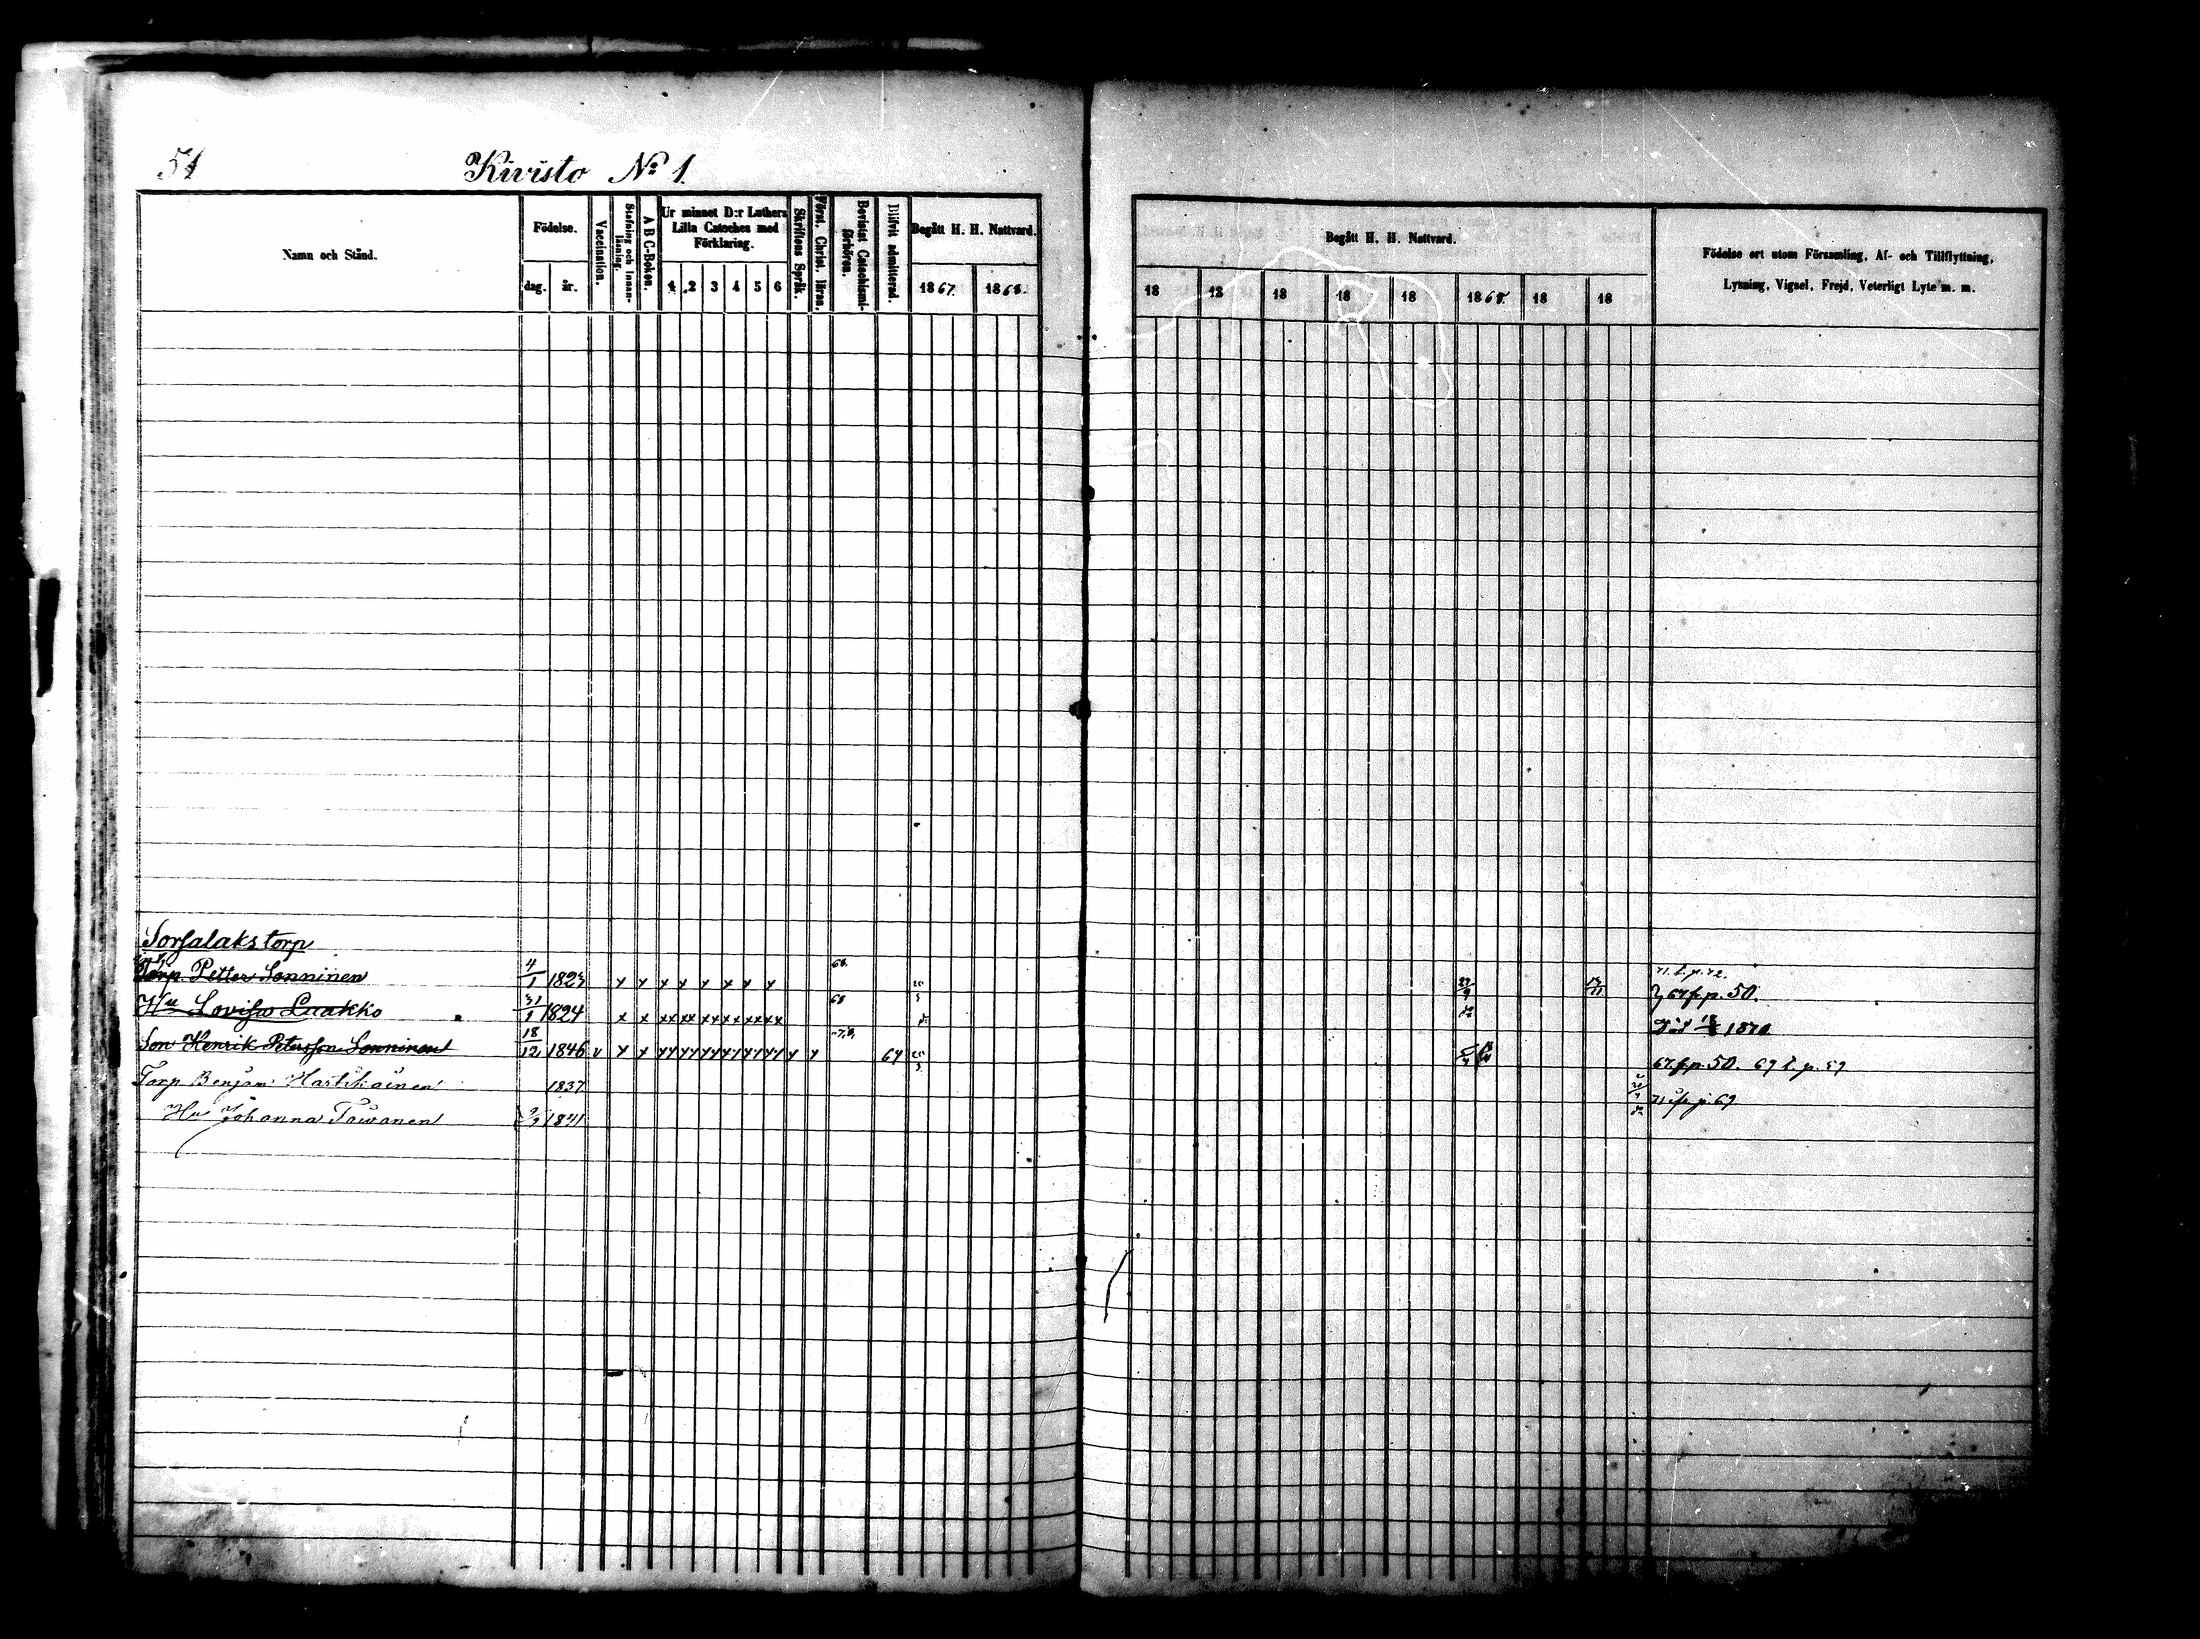 51 Kivisto No 1.
Namn och Stånd.
Födelse.
dag. år.
Vaccination.
Stafning och Innanläsning.
A B C-Boken.
Ur minnet D:r Luthers Lilla Cateches med Förklaring.
1 2 3 4 5 6
Skriftens Språk.
Först. Christ. läran.
Bevistat Catechismiförhören.
Blifvit admitterad.
Begått H. H. Nattvard.
1867. 1868.
Begått H. H. Nattvard.
18 18 18 18 18 1868. 18 18
Födelse ort utom Församling, Af- och Tillflyttning,
Lysning, Vigsel, Frejd, Veterligt Lyte m. m.
Sorsalaks torp
Torp Petter Sonninen 4/1 1823 x x x x x x x x 68. 71 t. p. 72.
67 f. p. 50.
Hu Lovisa Laakko 31/1 1824 x x xx xx xx xx xx xx 68 Död 1870
Son Henrik Petersson Sonninen 18/12 1846 v x x xx xx xx xx xx xx x x 64 67 f. p. 50. 69 t. p. 59
Torp Benjam Hartikainen 1837 71 if. p. 69
Hu Johanna Toivanen 1841